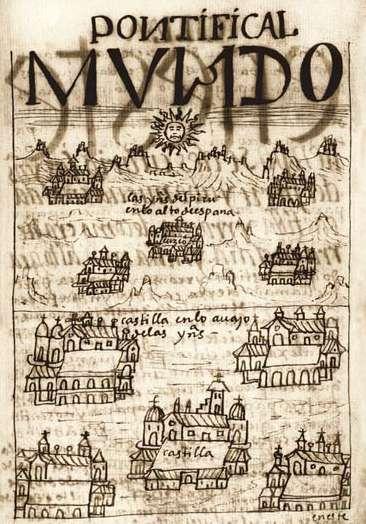 PONTÍFÍCAL
MVNDO
las yns del piru
enlo alto de espana
cuzco
castilla enlo auajo
delas yns
castilla
eneste